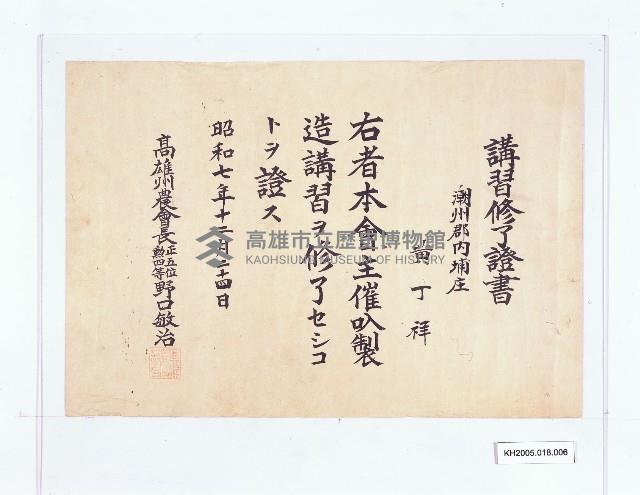 講習修了證書
潮州郡內埔庄
黃丁祥
右者本會主催叺製
造講習ヲ修了セシコ
トヲ證ス
昭和七年十二月二十四日
高雄州農會長正五位勲四等野口敏治
高雄市立歷史博物館
KAOHSIUNG MUSEUM OF HISTORY
KH2005.018.006